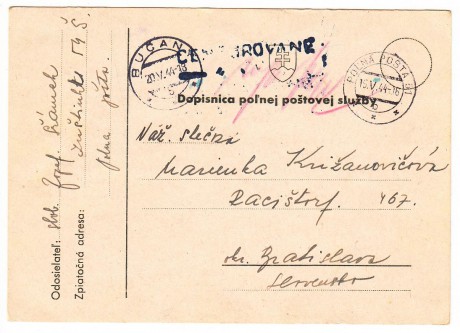 BUČANY
20.V.44-18
CENZUROVANÉ
POĽNÁ POŠTA
15.V.44-16
Dopisnica poľnej poštovej služby
Váž. slečna
Marienka Križanovičová
Račištorf. 467.
okr. Bratislava
Slovensko
Odosielateľ: slob. Jozef
Zpiatočná adresa:
poľná pošta